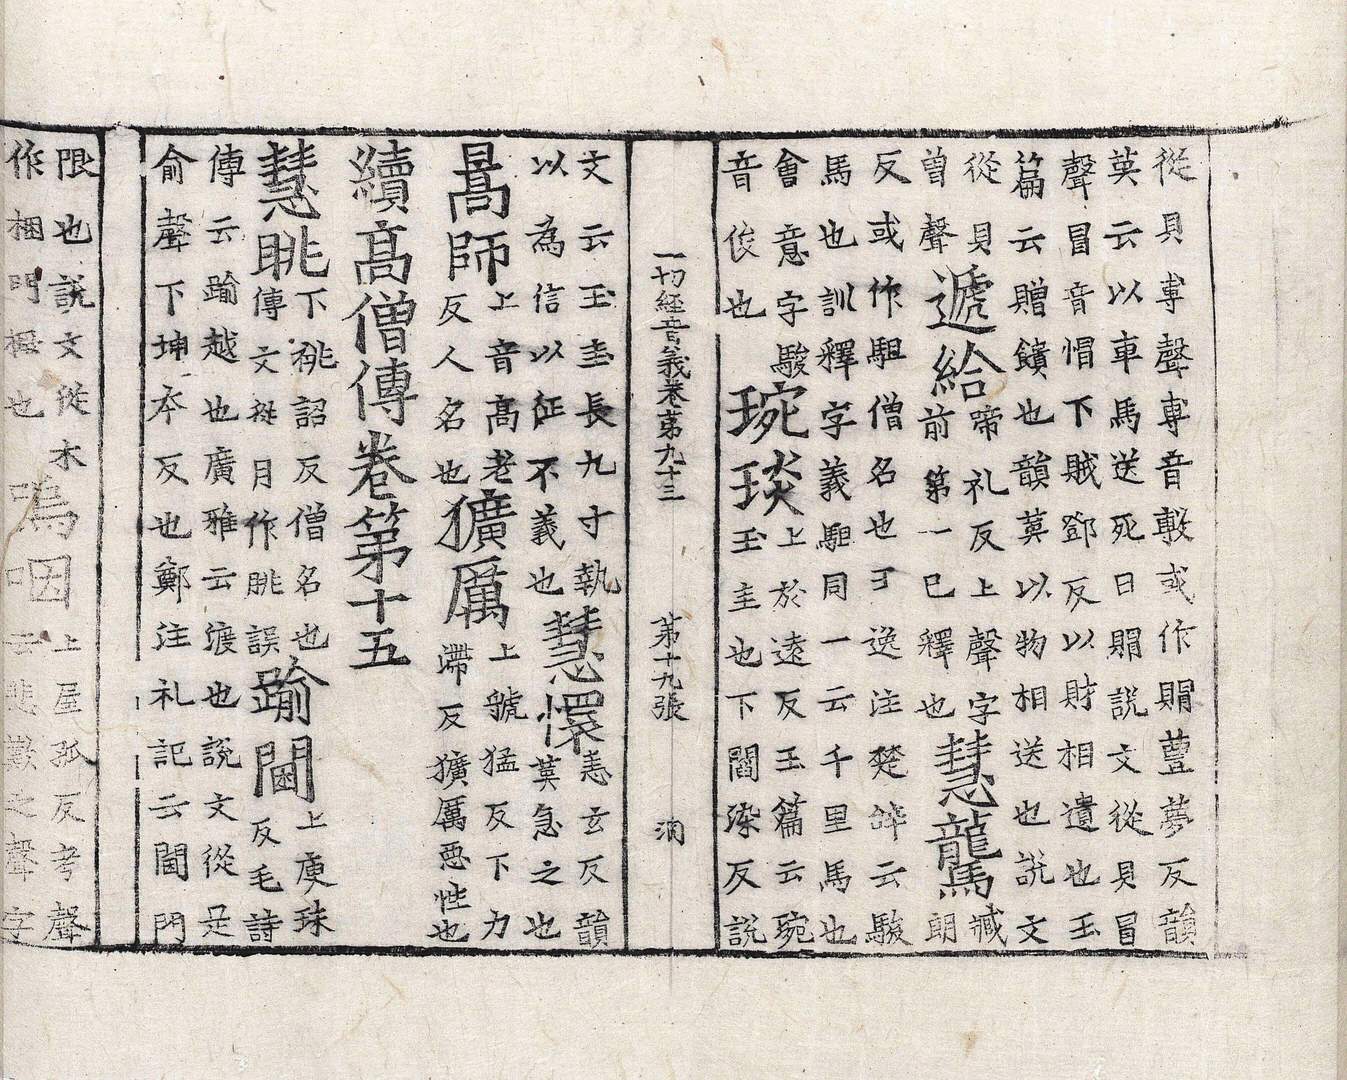 從貝尃聲尃音敷或作賵豊夢反韻
英云以車馬送死曰賵說文從貝冒
聲冒音帽下賊鄧反以財相遺也玉
篇云贈饋也韻英以物相送也說文
從貝
曾聲
遞給
帝礼反上聲字
前第一已釋也
慧龍馬
臧
朗
反或作駔僧名也王逸注楚辝云駿
馬也訓釋字義駔同一云千里馬也
會意字駿
音俊也
琬琰
上於遠反玉篇云琬
玉圭也下閻染反說
一切經音義卷第九十三 第十九張
文云玉圭長九寸執
以為信以征不義也
慧懁
恚玄反韻
英急之也
暠師
上音高老
反人名也
獷厲
上虢猛反下力
滯反獷厲惡性也
續高僧傳卷第十五
慧眺
下祧詔反僧名也
傳文從月作朓誤
踰閫
上庾珠
反毛詩
傳云踰越也廣雅云渡也說文從足
俞聲下坤夲反也鄭注礼記云閫門
限也說文從木
作梱門橛也
嗚咽
上屋孤反考聲
云悲歎之聲字